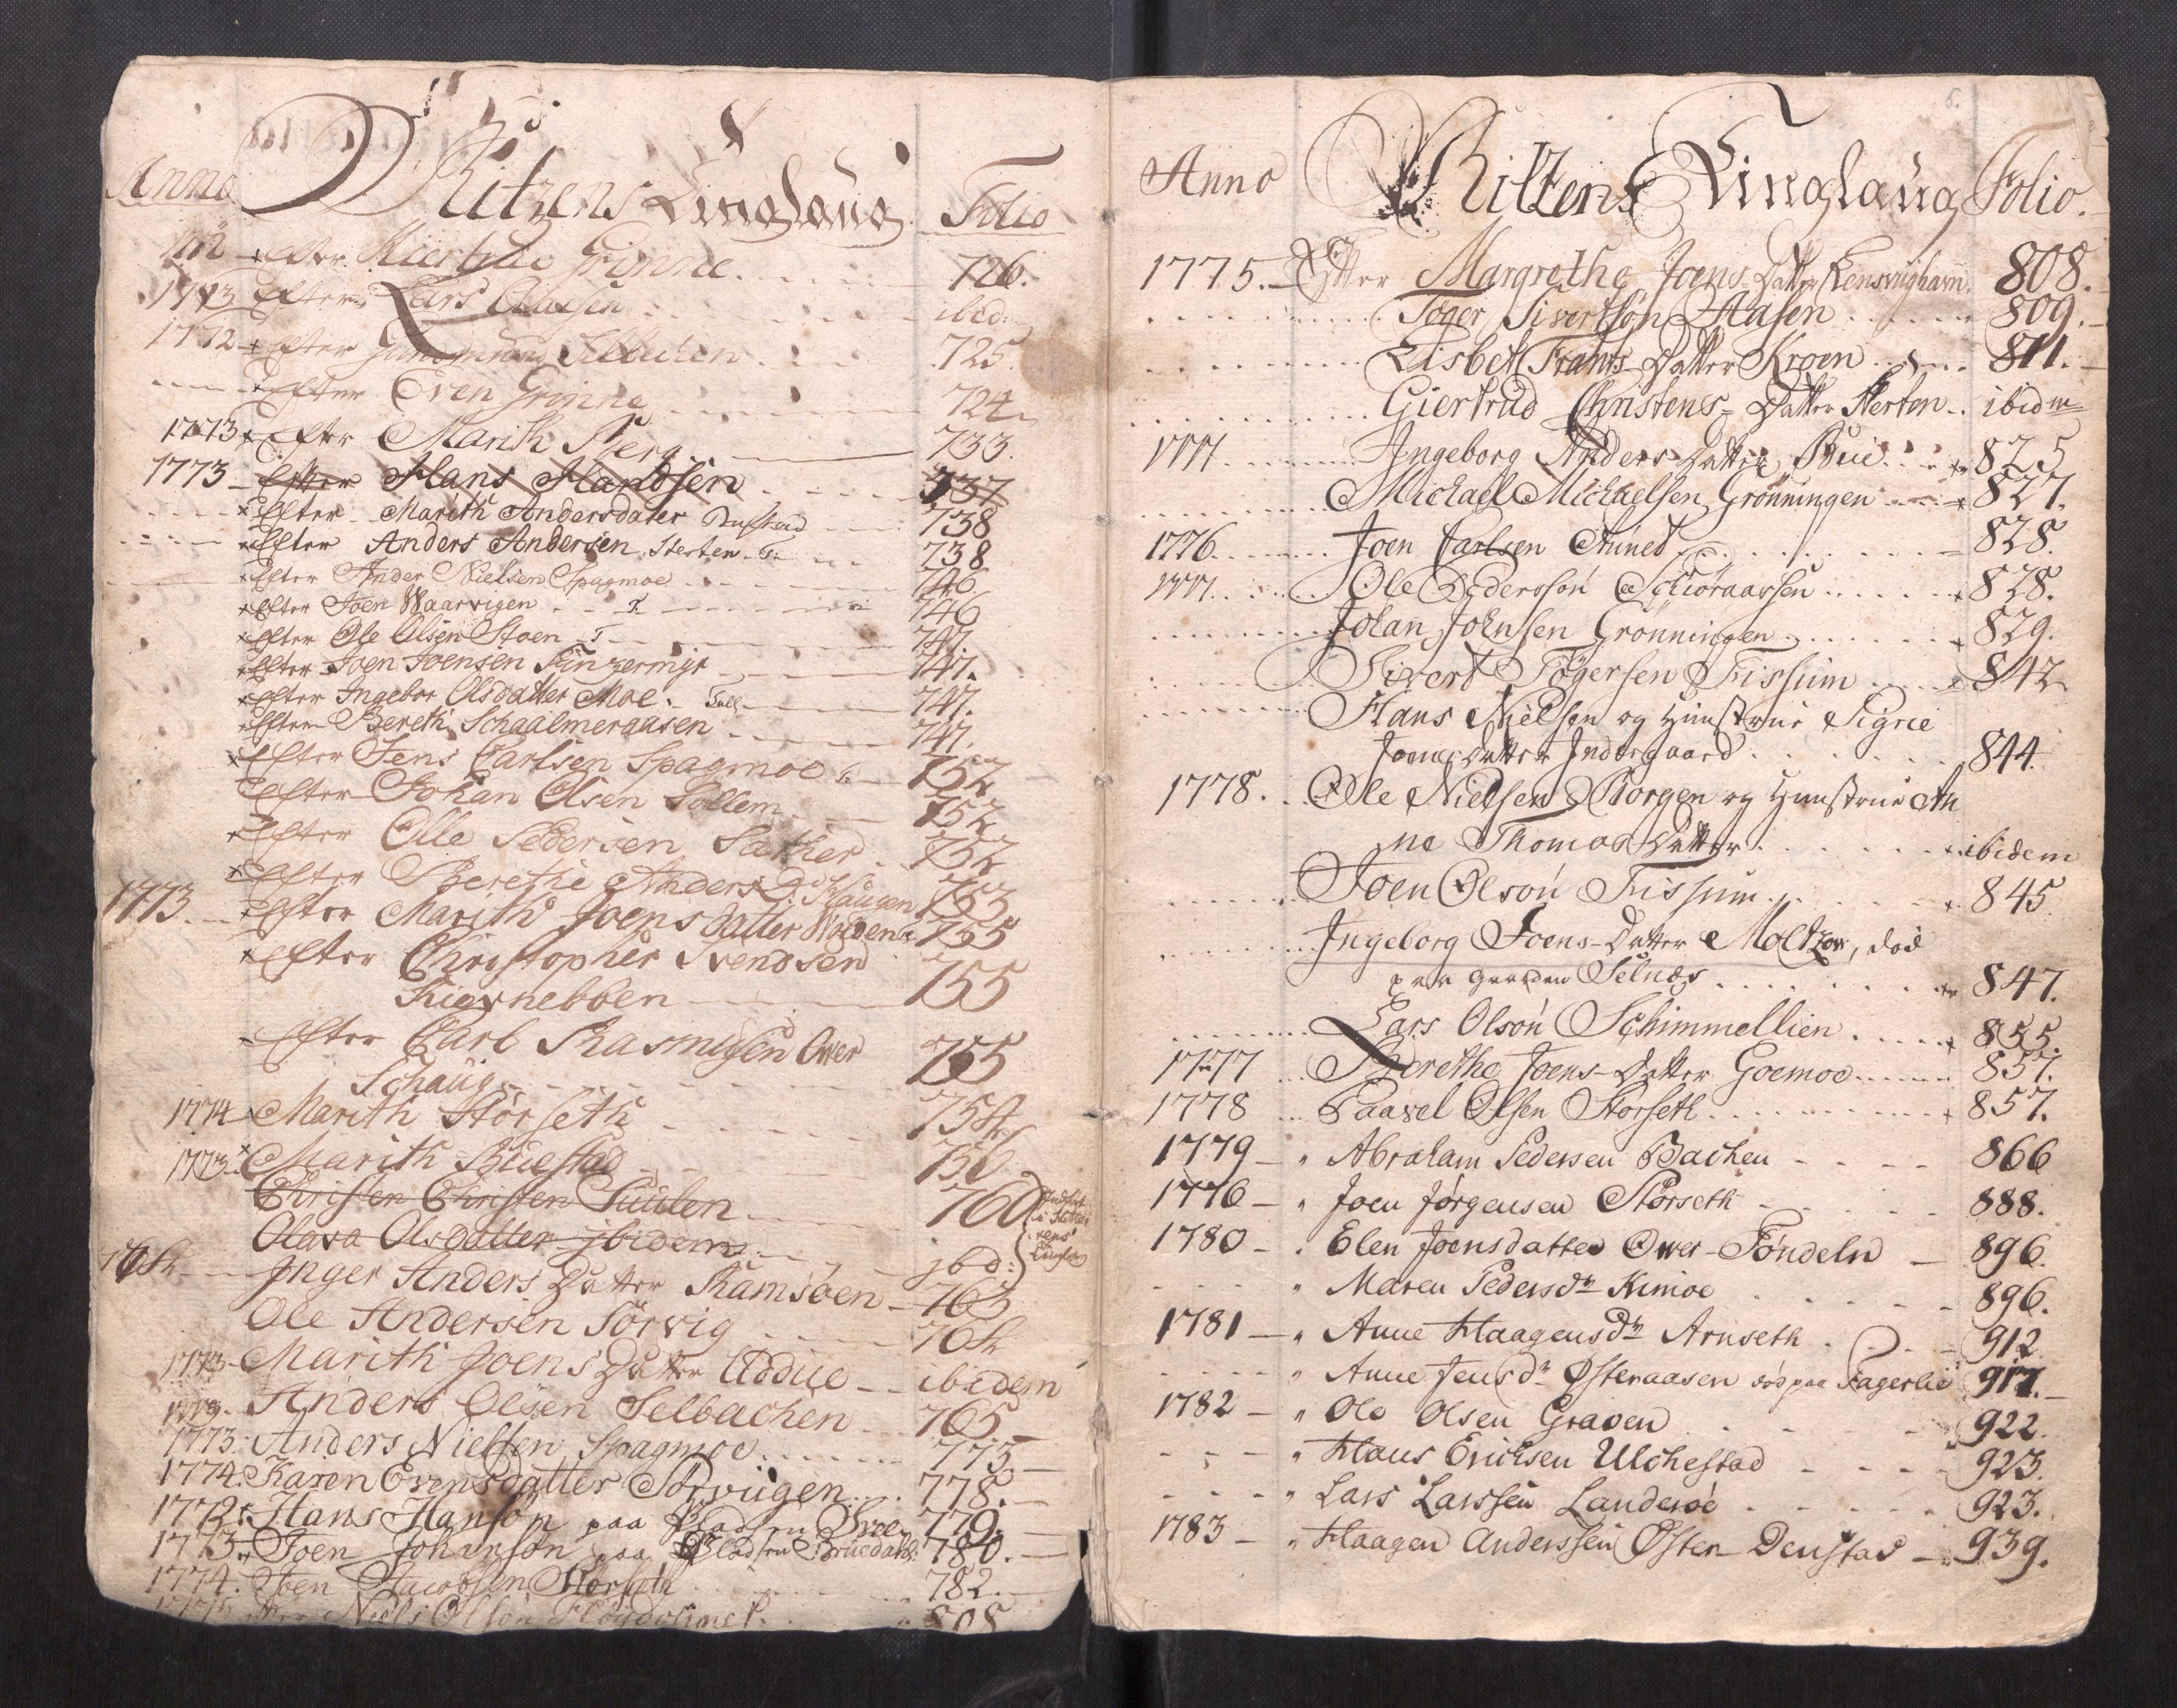 Anno Ritzens Tinglaug Folio
Efter Kiertrue Grinne 726.
1773 Efter Lars Clausen ibid:
1772 Efter Gundmund Selbachen 725.
Efter Even Grinne 724
1773 Efter Marith Berg 733.
1773 Efter Hans Handsen 737
Efter Marith Andersdater Rustad 738
Efter Anders Andersen Sterten 738
Efter Ander Nielsen Spagmoe 746
Efter Joen Waarvigen 746
Efter Ole Olsen Stoen 747.
Efter Joen Joensen Finzermyr 747.
Efter Ingebor Olsdatter Moe 747.
Efter Bereth Schaalmeraasen 747.
Efter Jens Carlsen Spagmoe 752
Efter Johan Olsen Sollem 752
Efter Olle Pedersen Sæther 752
Efter Berethe Anders D. Haugen 753
1773. Efter Marith Joens Datter Wolden 755
Efter Christopher Svendsen
Kiernebben 755
Efter Carl Rasmusen Over 755
Schaug
1774 Marith Störseth 754
1773 Marith Ruestad 756
Christen Christen Suulen 760
Olava Olsdatter ibidem ibd:
Inger Anders Datter Ramsöen 763
Ole Andersen Sörvig 764
1773 Marith Joens Datter Uddue ibidem
1773. Anders Olsen Selbachen 765
1773. Anders Nielsen Spagmoe 773
1774. Karen Evensdatter Sörvigen 778.
1772. Hans Hansön paa Pladsen Svee 779.
1773. Joen Johansön paa Pladsen Bruedahl 780.
1774. Iben Jacobsen Storseth 782.
1775 Efter Niels Olsön 808
6.
Anno Rittens Tinglaug Folio.
1775. Efter Margrethe Joens Datter Rensvighavn 808.
Töger Sivertsön Hasen 809.
Lisbet Frants Datter Kroen 811.
Giertrud Christens Datter Sterten ibidm
1777. Ingeborg Anders Datter Bue 825
Michael Michaelsen Grönningen 827.
1776. Joen Carlsen Aune 828.
1777. Ole Pedersön Schioraassen 828.
Johan Johnsen Grönningen 829.
Sivert Tögersen Fissum 842
Hans Nielsen og Hustrue Sigrie
Joens Datter Indergaard 844.
1778. Ole Nielsen Borgen og Hustrue An
ne Thomas Datter ibidem
Joen Olsön Fissum 845
Ingeborg Joens Datter Moltzow, död
paa Gaarden Selnæs 847.
Lars Olsön Schimmellien 855.
1777 Berethe Joens Datter Goemoe 857.
1778 Paavel Olsen Störseth 857.
1779 Abraham Pedersen Bachen 866
1776 Joen Jörgensen Störseth 888.
1780 Elen Joensdatter Over Töndeln 896.
Maren Pedersdr Kimoe 896.
1781 Anne Haagensdr Arnseth 912.
Anne Jensdr Østeraasen död paa Fagerlie 917.
1782 Ole Olsen Graven 922.
Hans Erichsen Ulchestad 923.
Lars Larssen Landeröe 923.
1783 Haagen Anderssen Øster Denstad 939.